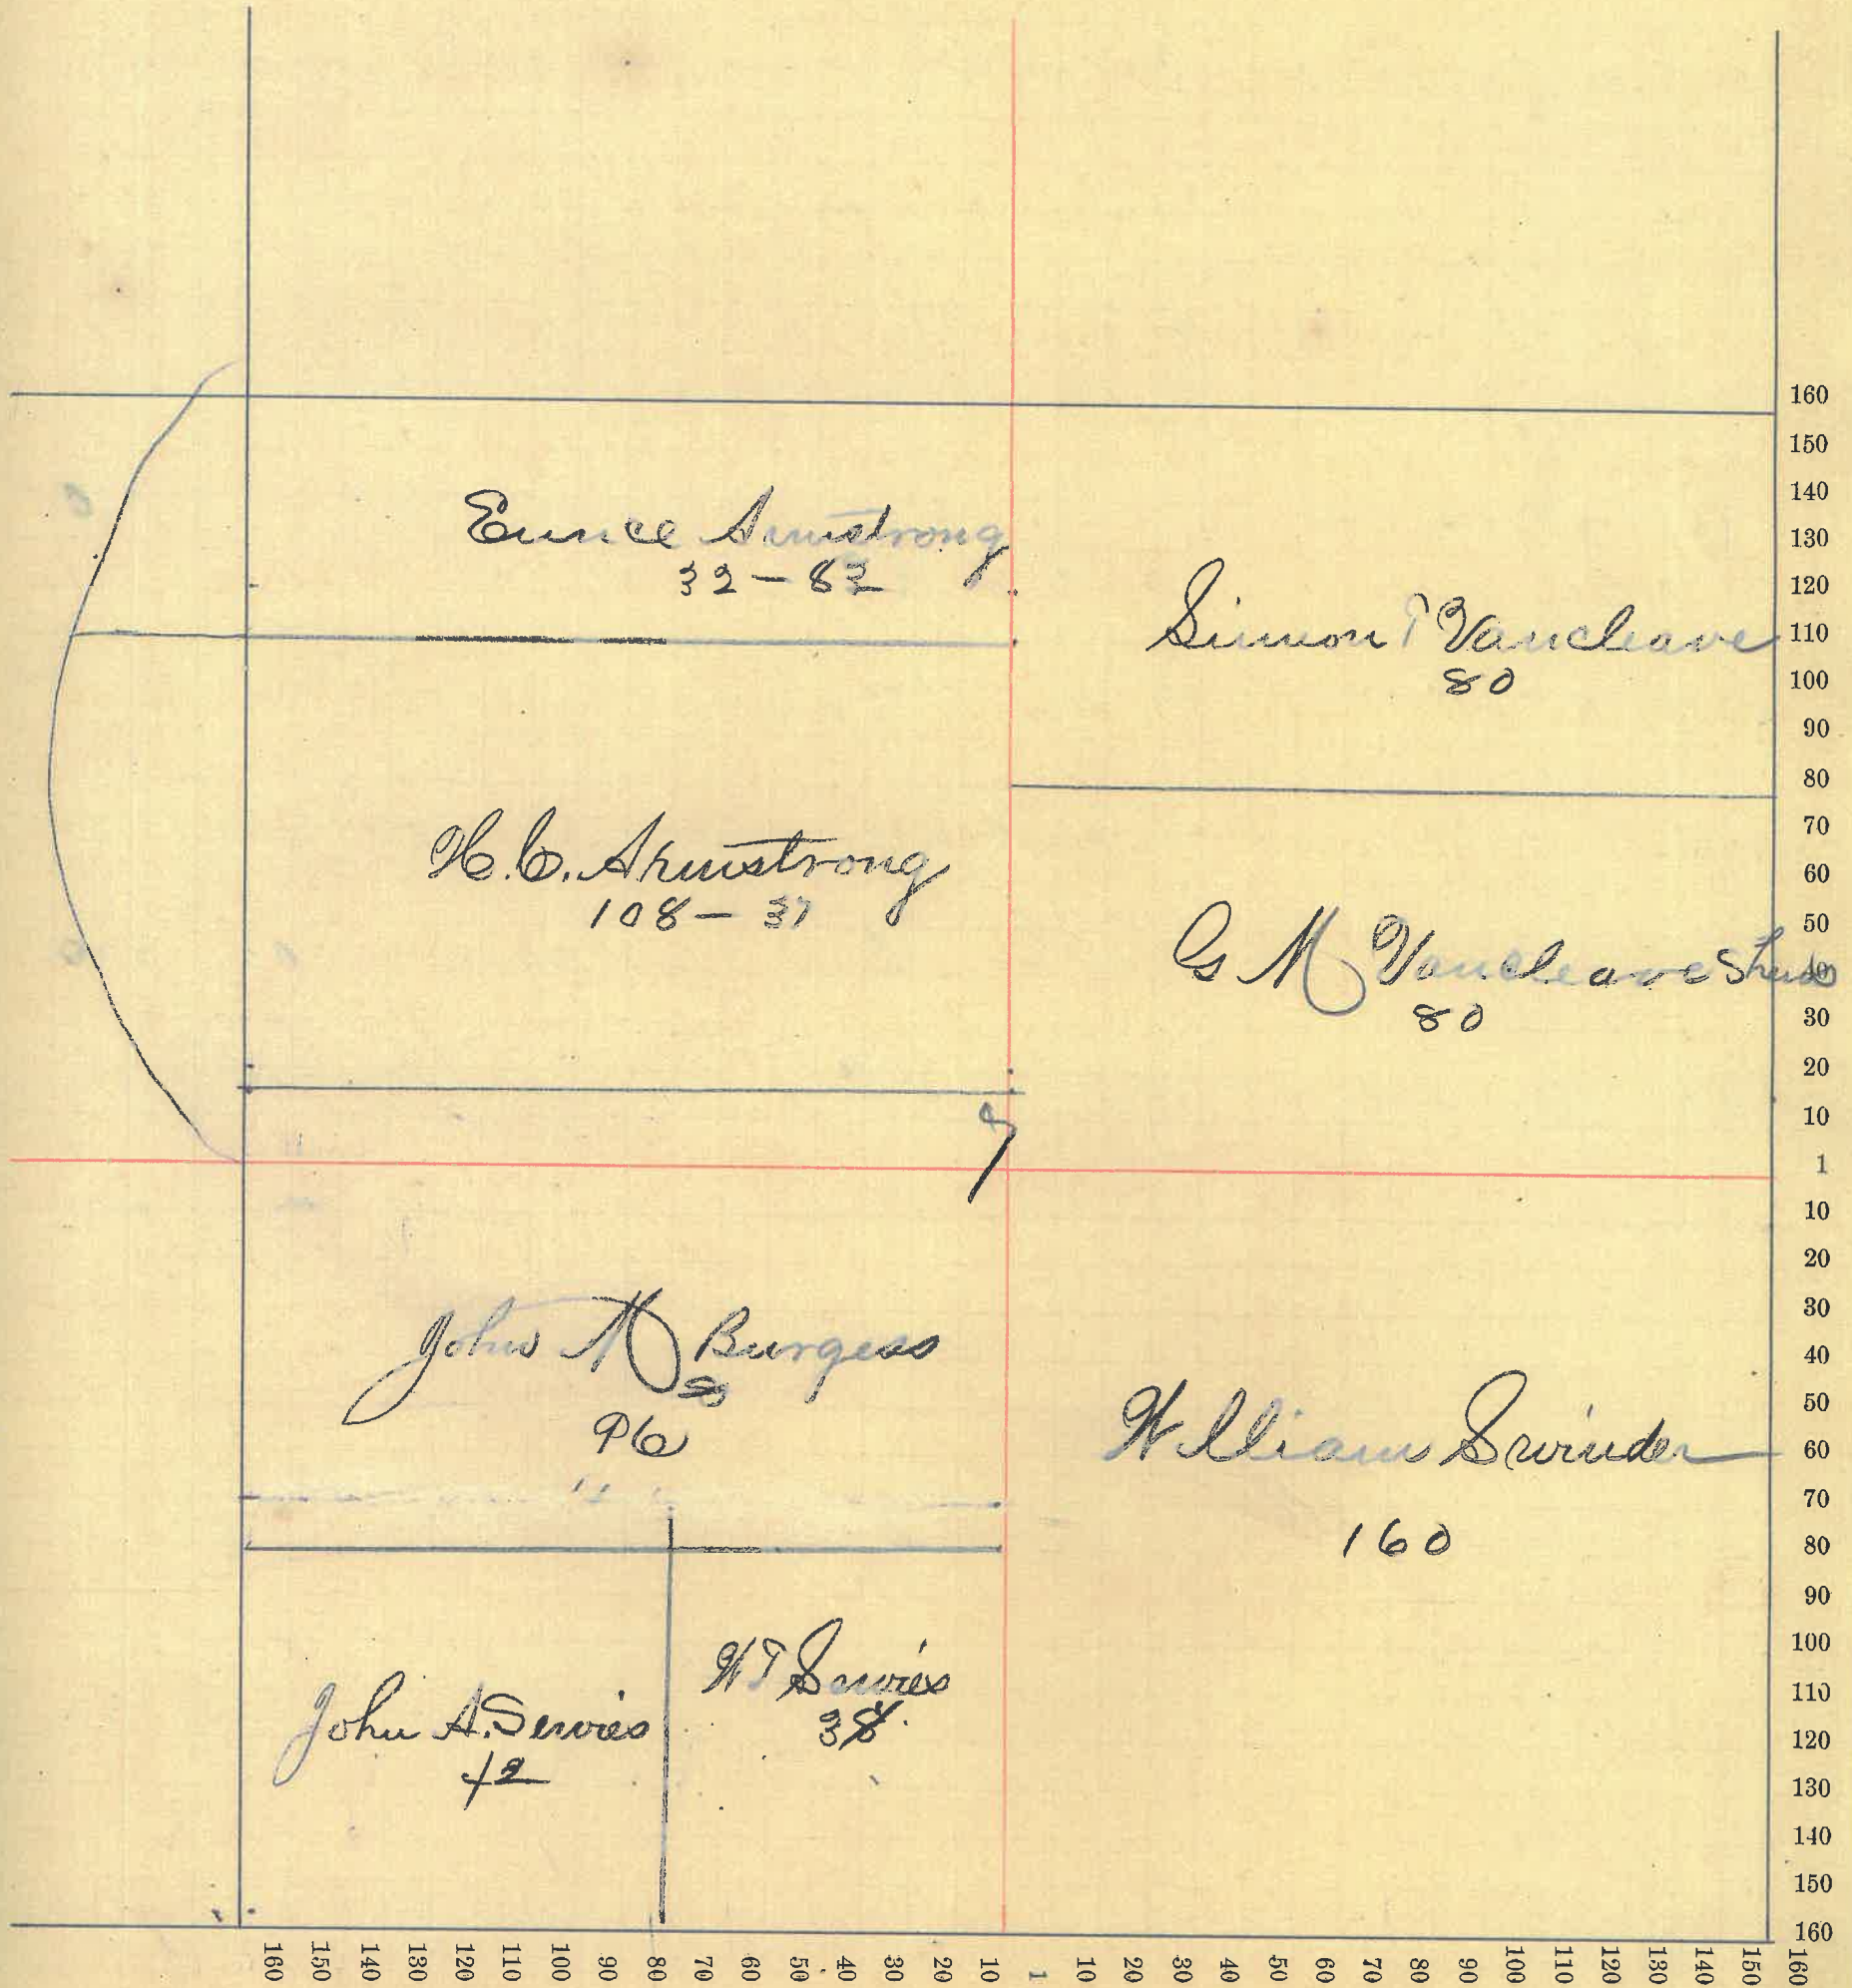 Eunice Armstrong
32 — 82
Simon T Vancleave
80
H. C. Armstrong
108 — 37
G M Vancleave
80
John M Burgess
96
William Swinder
160
John A. Servies
42
W T Servies
38
160
150
140
130
120
110
100
90
80
70
60
50
40
30
20
10
1
10
20
30
40
50
60
70
80
90
100
110
120
130
140
150
160
160 150 140 130 120 110 100 90 80 70 60 50 40 30 20 10 1 10 20 30 40 50 60 70 80 90 100 110 120 130 140 150 160